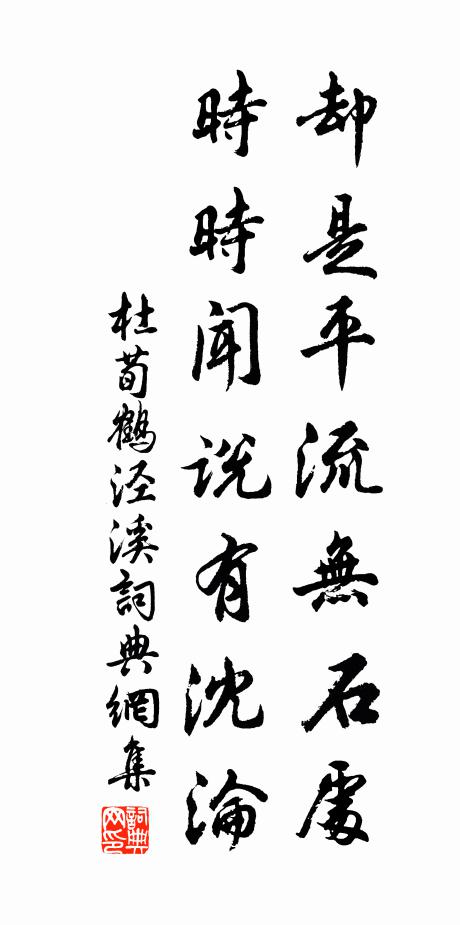 却是平流無石處
時時聞說有沈淪
杜荀鶴泾溪詞典網集
詞典网印